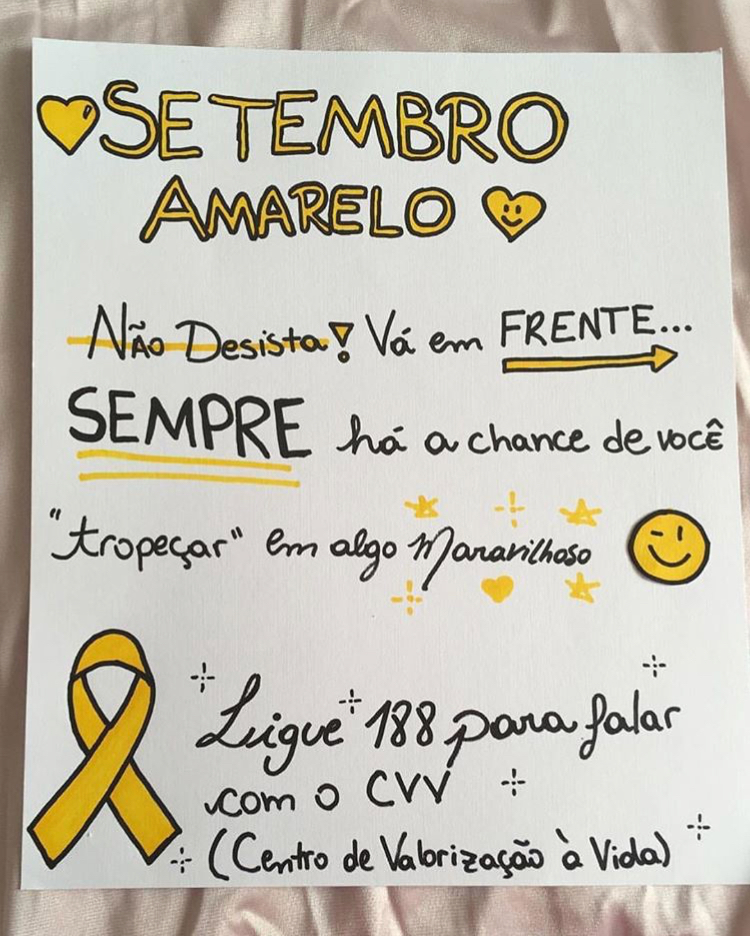 SETEMBRO
AMARELO
Não Desista! Vá em FRENTE...
SEMPRE há a chance de você
"tropeçar" em algo Maravilhoso
Ligue 188 para falar
com o CVV
(Centro de Valorização à Vida)